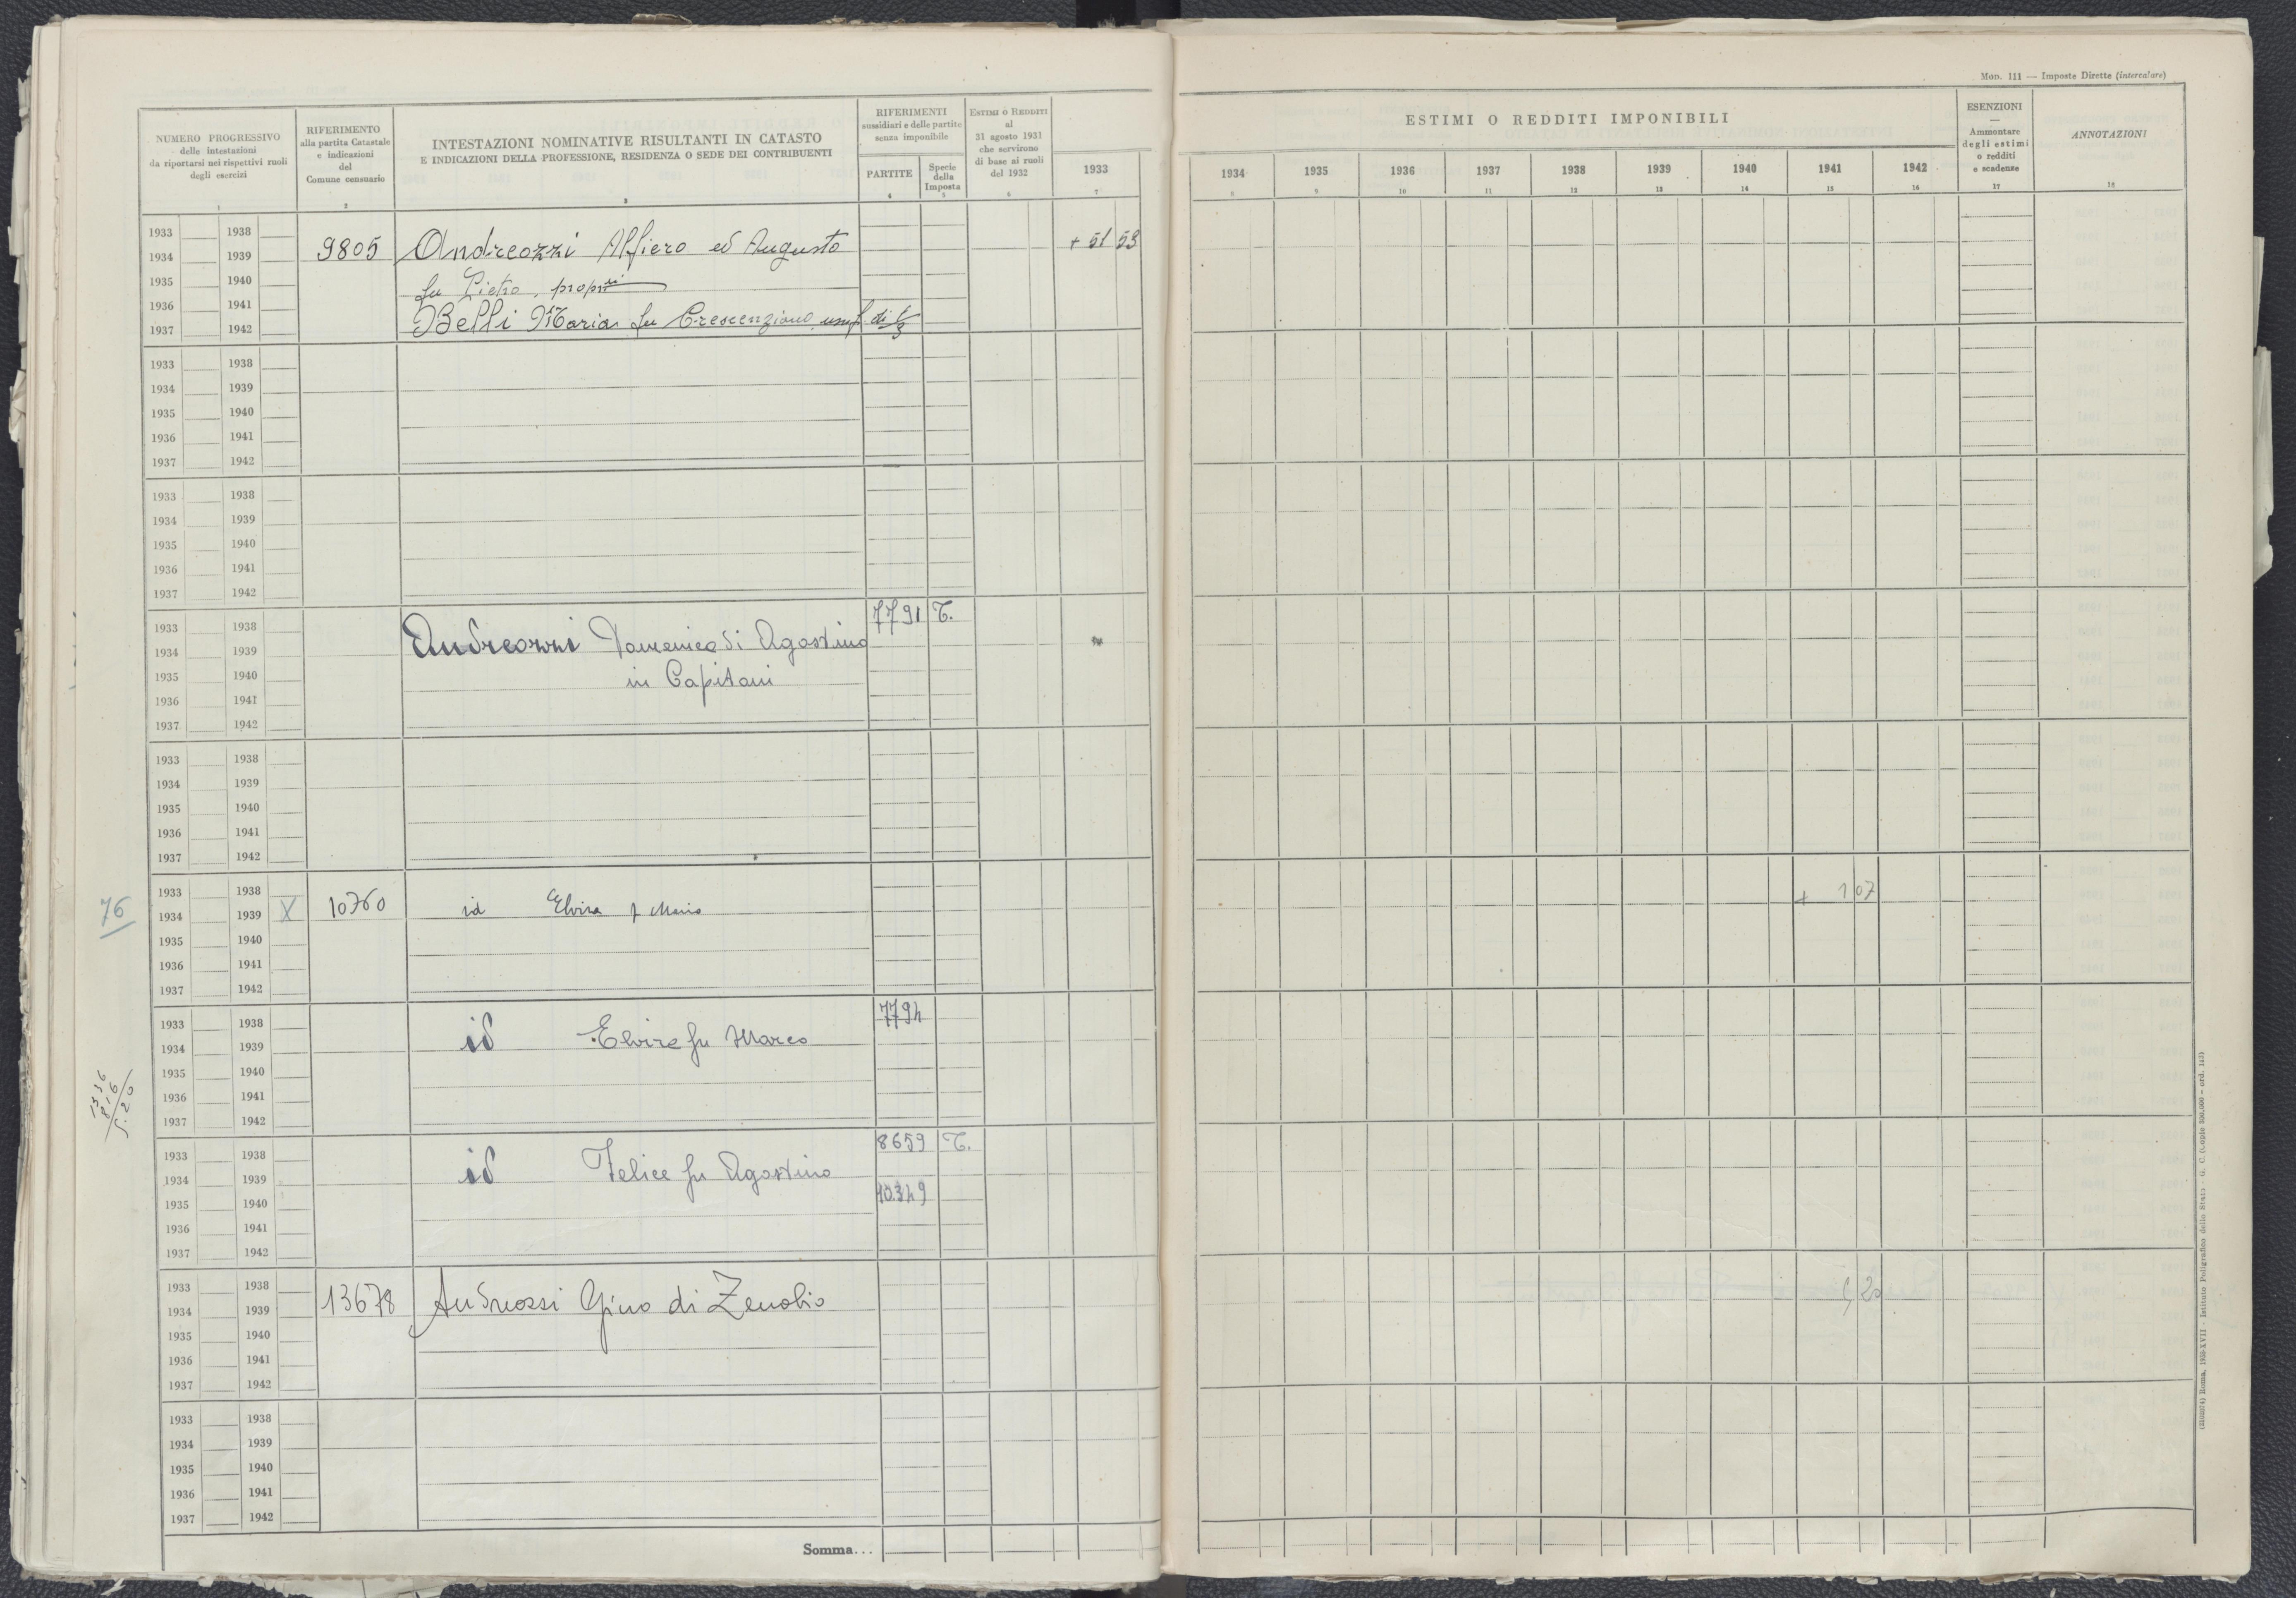 Mod. 111 — Imposte Dirette (intercalare)
NUMERO PROGRESSIVO
delle intestazioni
da riportarsi nei rispettivi ruoli
degli esercizi
1
RIFERIMENTO
alla partita Catastale
e indicazioni
del
Comune censuario
2
INTESTAZIONI NOMINATIVE RISULTANTI IN CATASTO
E INDICAZIONI DELLA PROFESSIONE, RESIDENZA O SEDE DEI CONTRIBUENTI
3
RIFERIMENTI
sussidiari e delle partite
senza imponibile
PARTITE
4
Specie
della
Imposta
5
ESTIMI O REDDITI
al
31 agosto 1931
che servirono
di base ai ruoli
del 1932
6
1933
7
ESTIMI O REDDITI IMPONIBILI
1934 1935 1936 1937 1938 1939 1940 1941 1942
8 9 10 11 12 13 14 15 16
ESENZIONI
—
Ammontare
degli estimi
o redditi
e scadenze
17
ANNOTAZIONI
18
1933 1938
1934 1939 9805 Andreozzi Alfiero ed Augusto + 51 53
1935 1940 fu Pietro, propri
1936 1941
1937 1942 Belli Maria fu Crescenziano usuf di 1/3
1933 1938
1934 1939
1935 1940
1936 1941
1937 1942
1933 1938
1934 1939
1935 1940
1936 1941
1937 1942
1933 1938 7791 T.
1934 1939 Andreozzi Domenica di Agostino
1935 1940 in Capitani
1936 1941
1937 1942
1933 1938
1934 1939
1935 1940
1936 1941
1937 1942
1933 1938
76 1934 1939 X 10760 id Elvira f Mario + 1 07
1935 1940
1936 1941
1937 1942
1933 1938 7794
1934 1939 id Elvira fu Marco
1935 1940
1936 1941
1937 1942
1336
816
5.20
1933 1938 8659 T.
1934 1939 id Felice fu Agostino
1935 1940 10349
1936 1941
1937 1942
1933 1938
1934 1939 13678 Andreossi Gino di Zenobio 5 20
1935 1940
1936 1941
1937 1942
1933 1938
1934 1939
1935 1940
1936 1941
1937 1942
Somma...